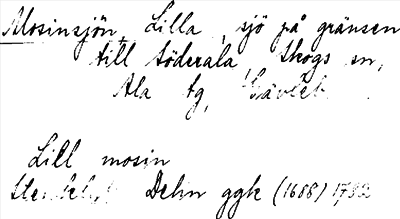 Mosinsjön, Lilla, sjö på gränsen
till Söderala, Skogs sn,
Ala tg, Gävleb.
Lill mosin
Delin ggk (1688) 1782